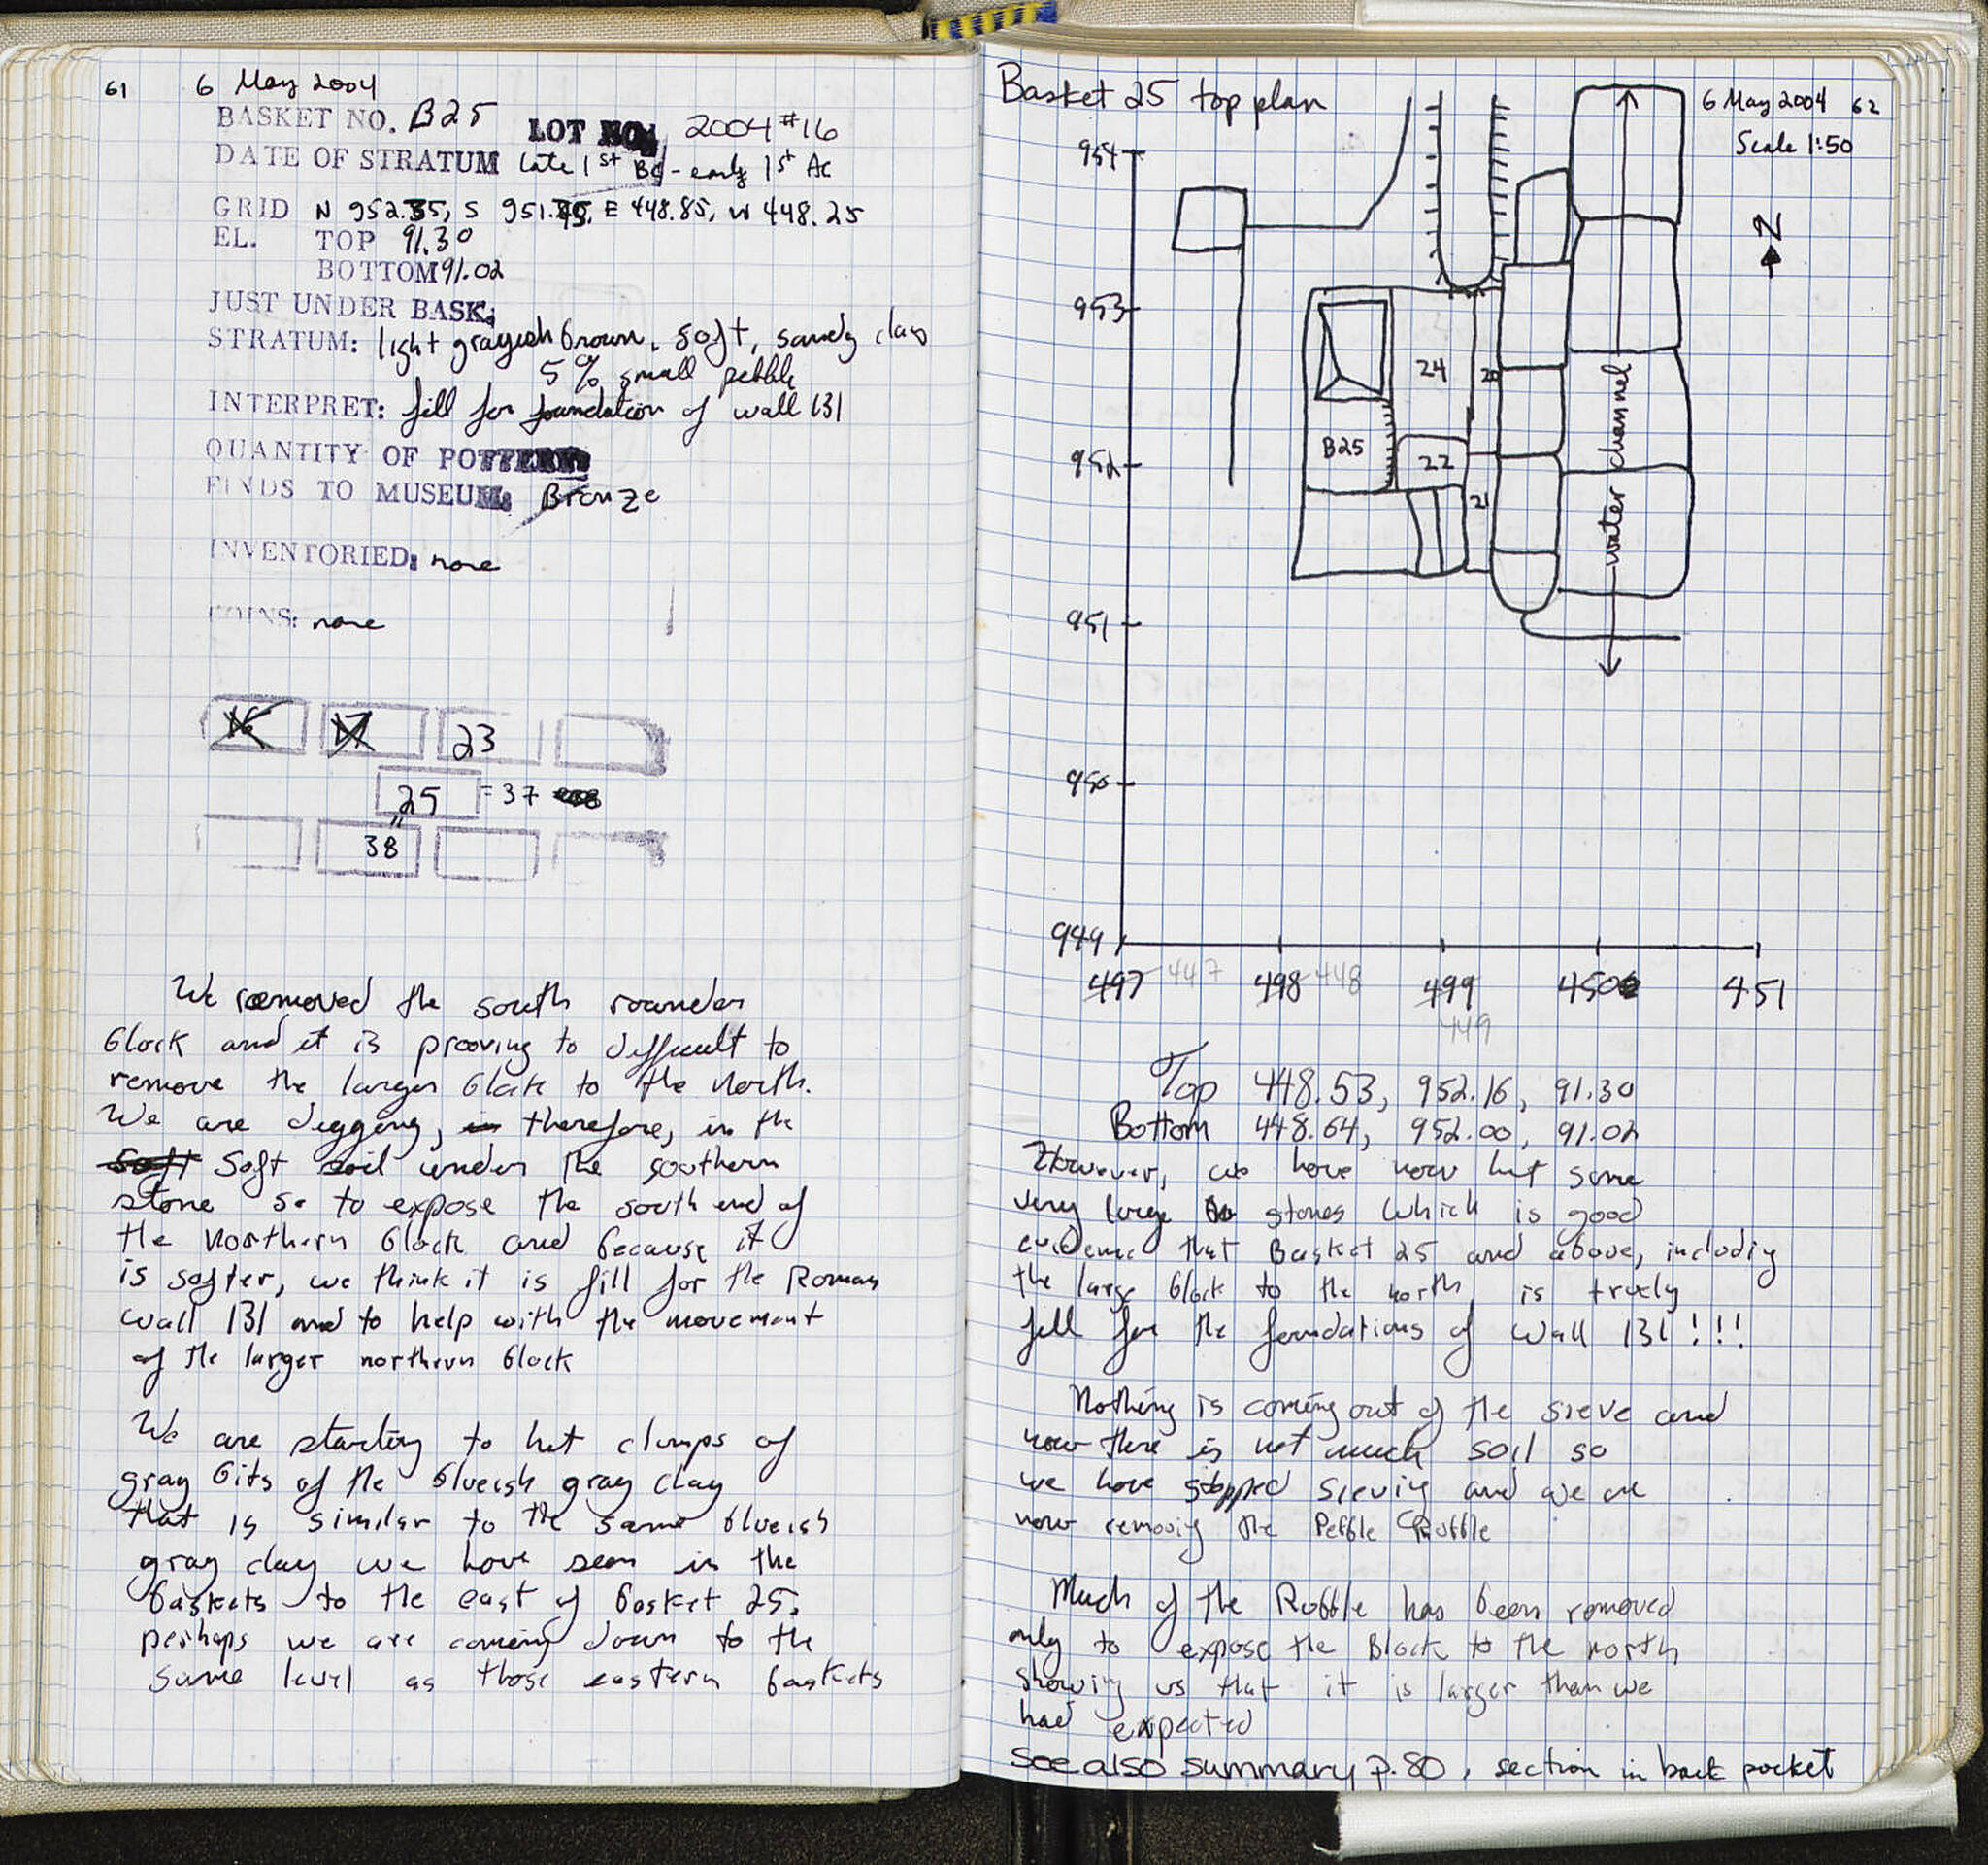 61 6 May 2004
BASKET NO. B25 LOT NO. 2004 #16
DATE OF STRATUM Late 1st BC - early 1st AC
GRID N 952.35, S 951.85, E 448.85, W 448.25
EL. TOP 91.30
BOTTOM 91.02
JUST UNDER BASK:
STRATUM: light grayish brown, soft, sandy clay
5% small pebble
INTERPRET: fill for foundation of wall 131
QUANTITY OF POTTERY
FINDS TO MUSEUM: Bronze
INVENTORIED: none
COINS: none
16 17 23
25 = 37
"
38
We removed the south rounder
block and it is prooving to difficult to
remove the larger block to the north.
We are digging, in therefore, in the
soft soft soil under the southern
stone so to expose the south end of
the northern block and because it
is softer, we think it is fill for the Roman
wall 131 and to help with the movement
of the larger northern block
We are starting to hit clumps of
gray bits of the blueish gray clay
that is similar to the same blueish
gray clay we have seen in the
baskets to the east of basket 25.
perhaps we are coming down to the
same level as those eastern baskets
Basket 25 top plan 6 May 2004 62
Scale 1:50
N
954
953
952
951
950
949
24
20
B25
22
21
water channel
497 447 498 448 499 450 451
449
Top 448.53, 952.16, 91.30
Bottom 448.64, 952.00, 91.02
However, we have now hit some
very large stones which is good
evidence that Basket 25 and above, includig
the large block to the north is truely
fill for the foundations of Wall 131!!!
Nothing is coming out of the sieve and
now there is not much soil so
we have stopped sievig and we are
now removig the Pebble Rubble
Much of the Rubble has been removed
only to expose the Block to the north
showing us that it is larger than we
had expected
See also summary p. 80, section in back pocket